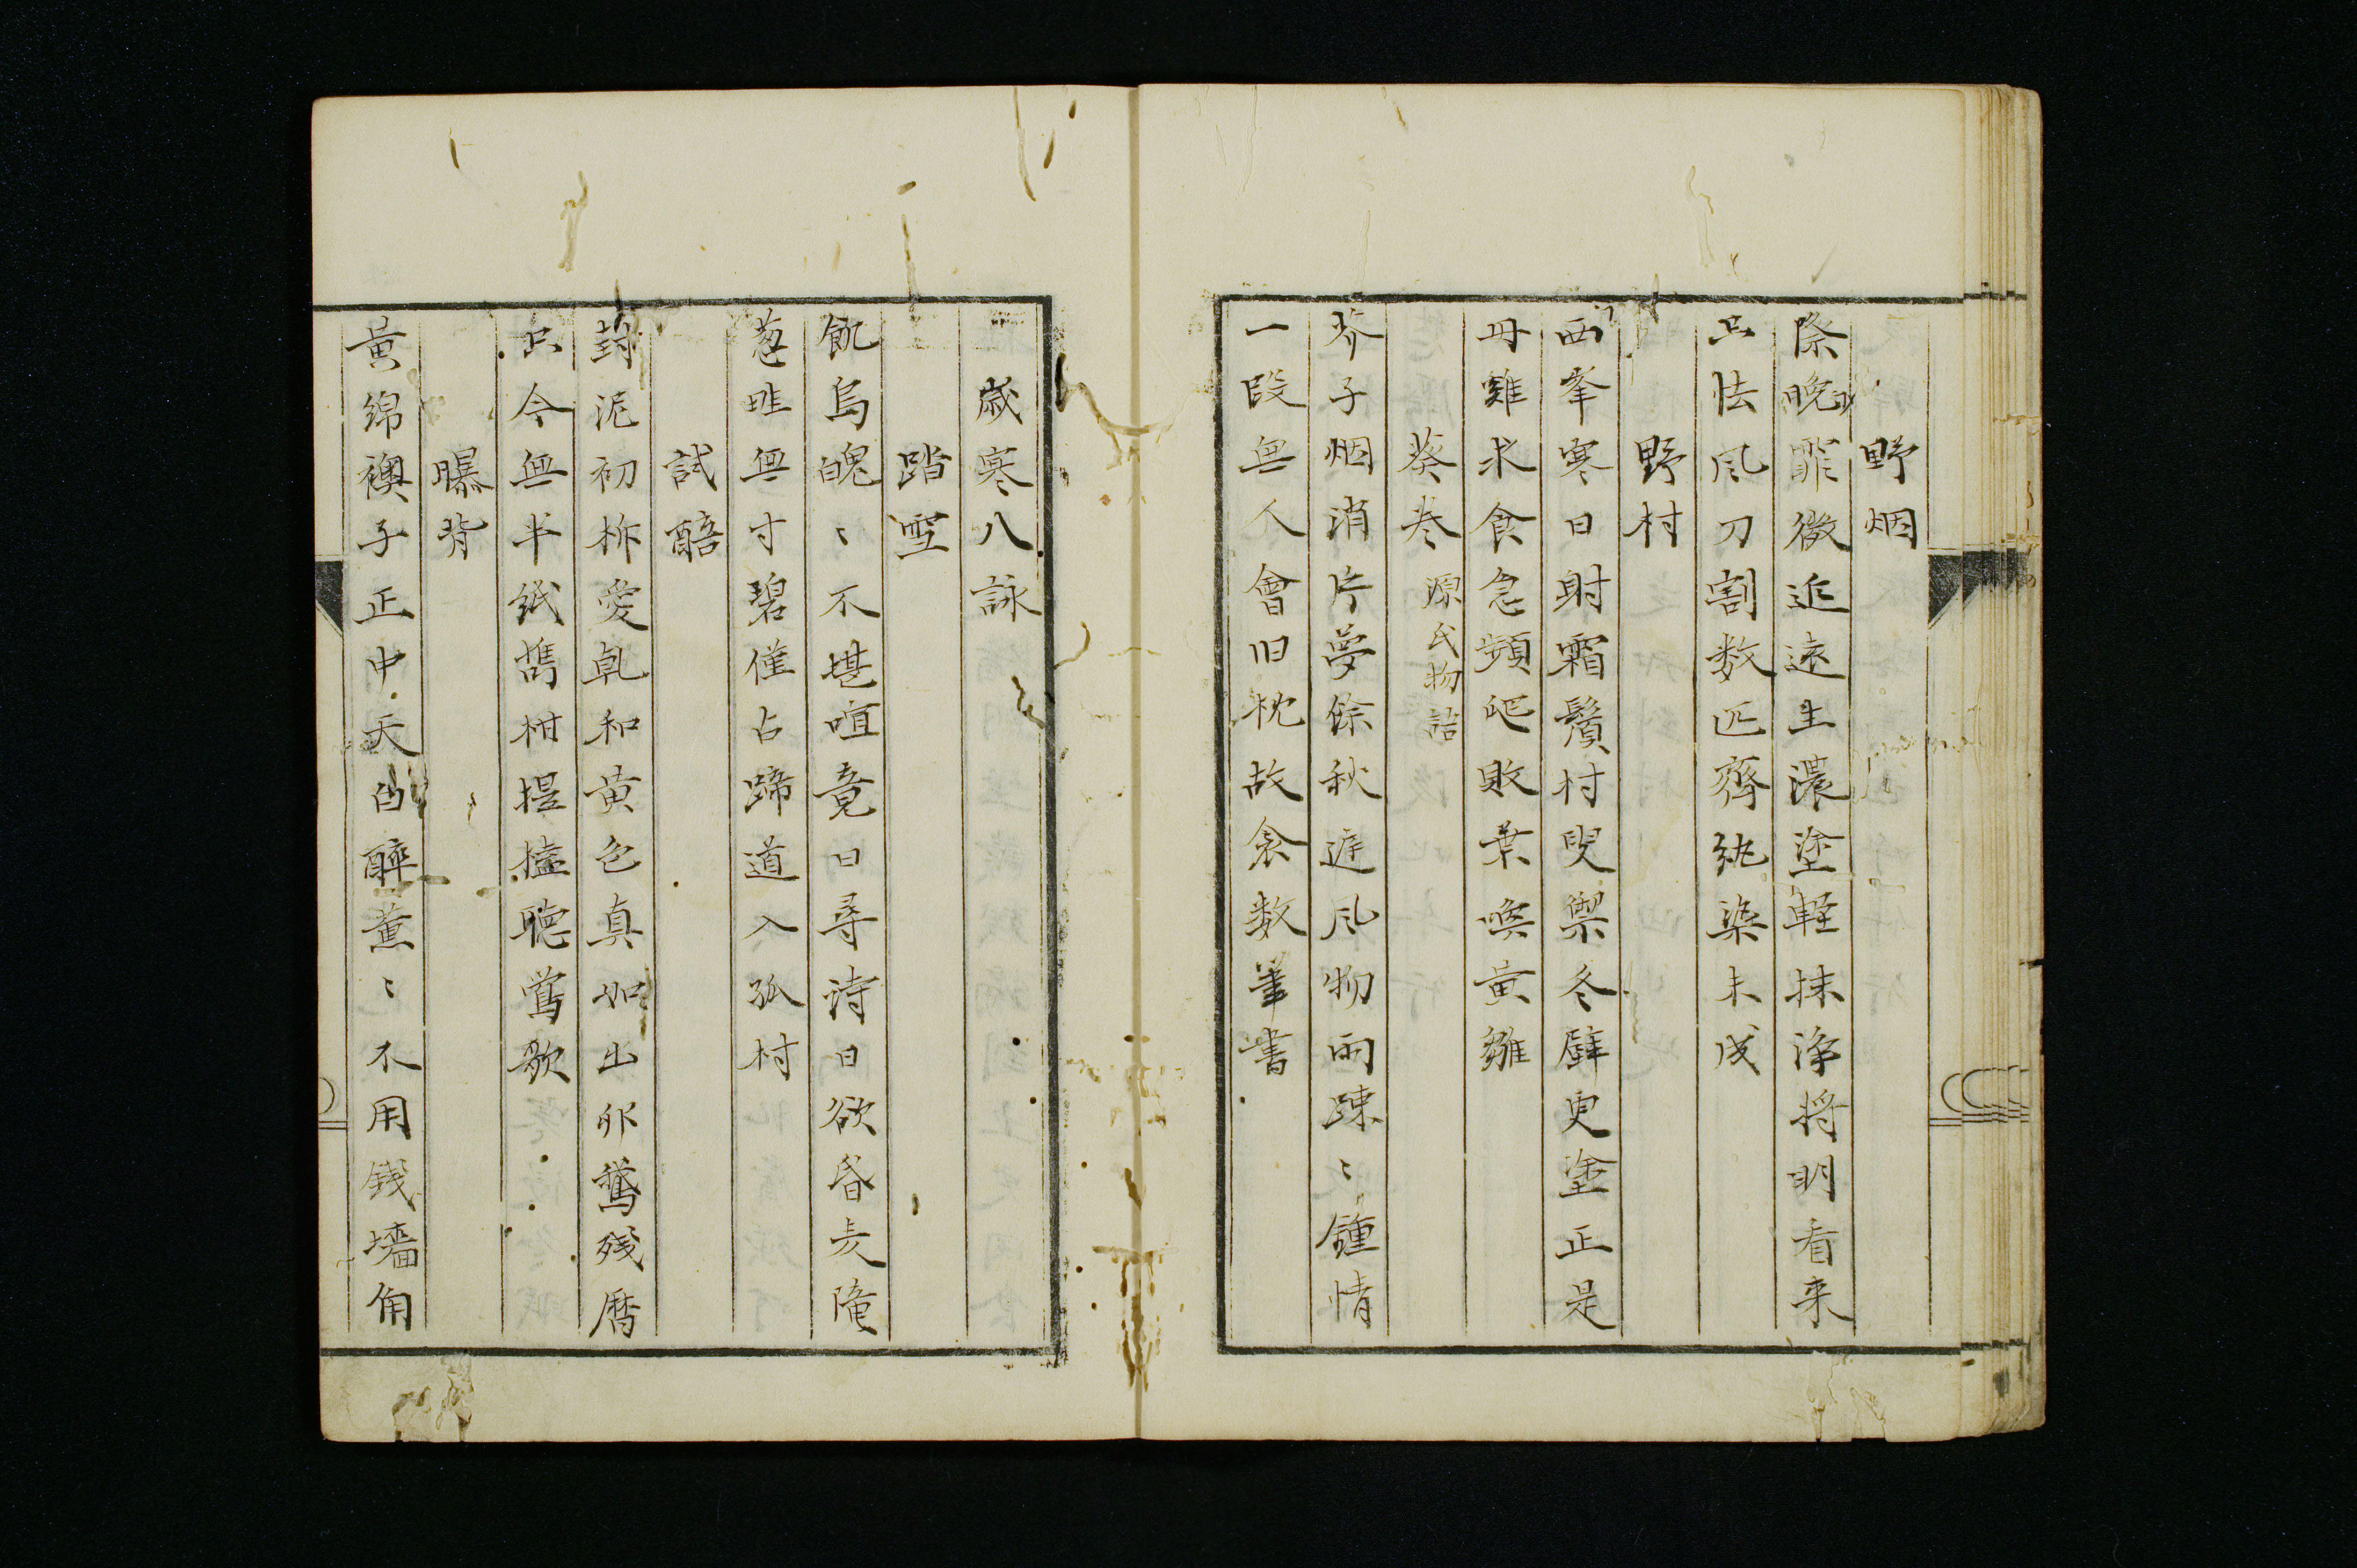 野烟
際晩霏微近遠生濃塗軽抹浄将明看来
只怯风刀割数匹齊紈染未成
野村
西峯寒日射霜鬢村叟禦冬壁更塗正是
母雞求食急頻呃敗葉喚黄雛
葵巻 源氏物語
芥子烟消片夢餘秋庭风物雨踈〻鍾情
一段無人會旧枕故衾数筆書
歳寒八詠
踏雪
飢烏魄〻不堪喧竟日尋詩日欲昏麦隴
葱畦無寸碧僅占蹄道入孤村
試醅
封泥初柞愛乹和黄色真如出卵鵞残暦
只今無半紙携柑提榼聴鴬歌
曝背
黄綿襖子正中天白醉薫〻不用銭墻角